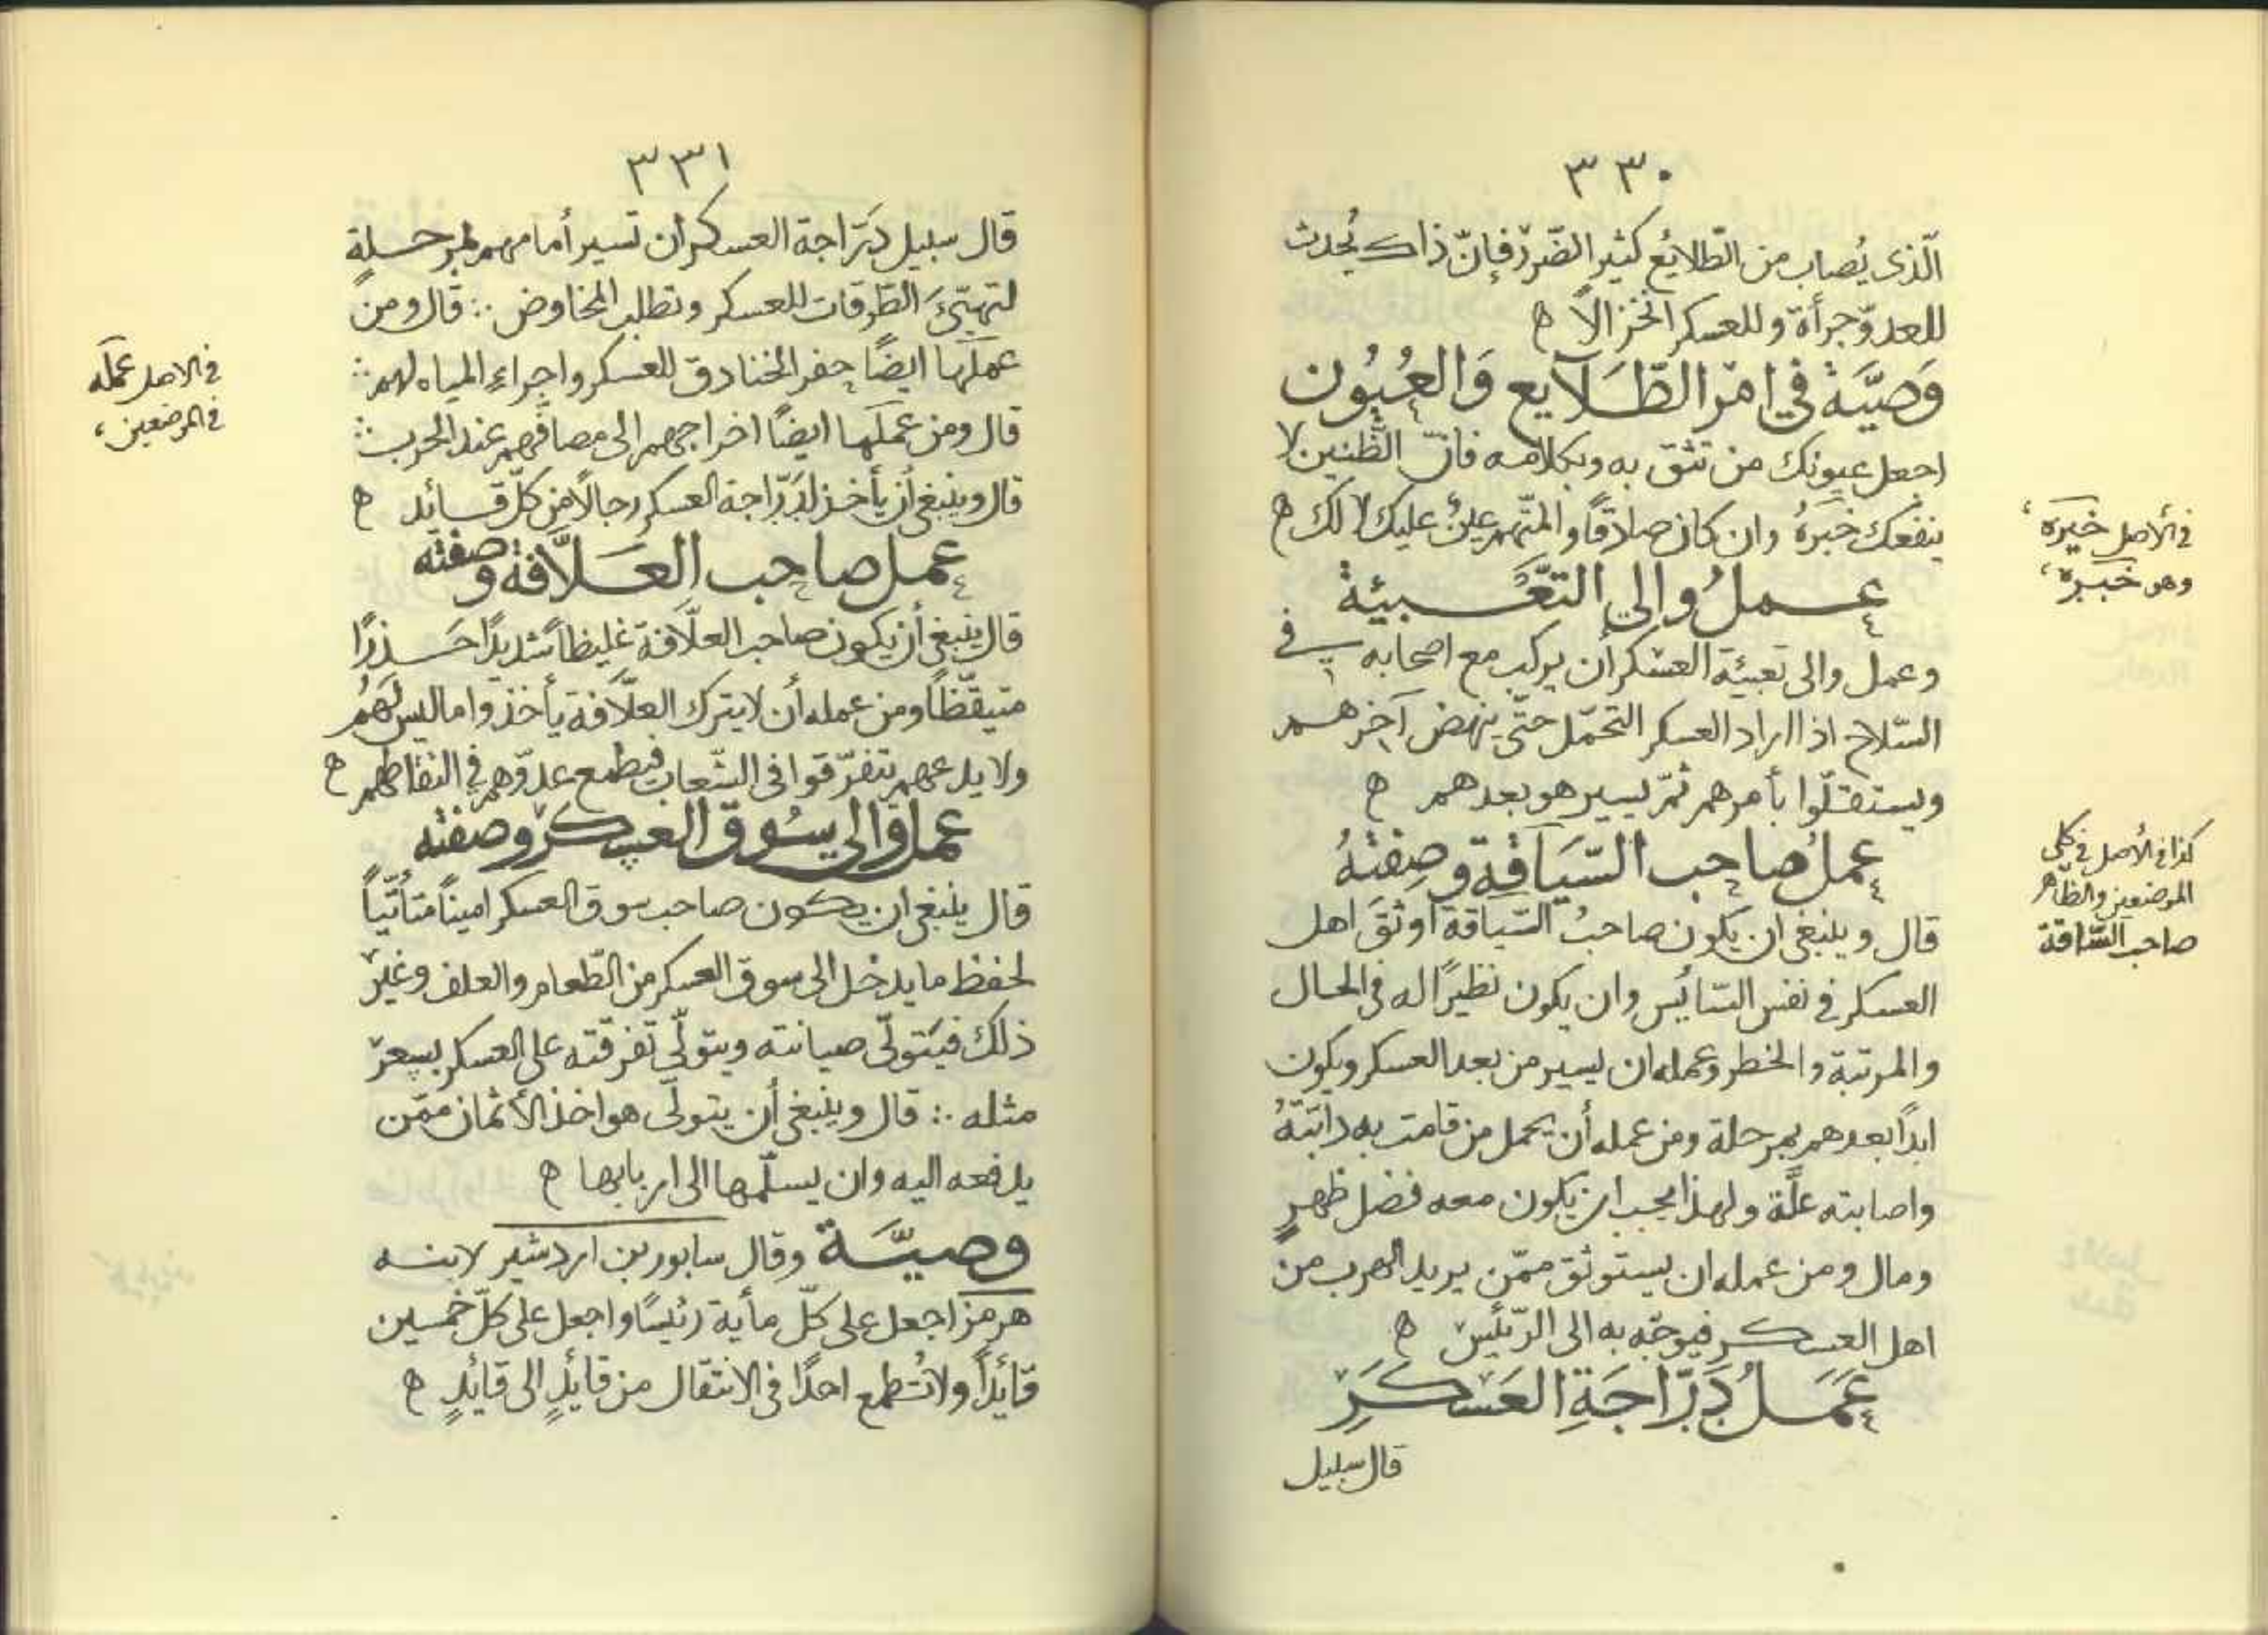 ٣٣٠
الّذى يُصاب من الطّلائع كثير الضّرر فإنّ ذاك يُحدث
للعدوّ جرأة وللعسكر انخزالاً ه
وَصيَّة في امر الطّلَايع وَالعُيُون
اجعل عيونك من تثق به وبكلامه فانّ الظّنين لا
ينفعك خبرهُ وان كان صادقًا والمتّهم عينٌ عليك لا لك ه
في الأصل خيره
وهو خبره
عمل والى التّعْبيئة
وعمل والى تعبيئة العسكر أن يركب مع اصحابه في
السّلاح اذا اراد العسكر التحمّل حتّى ينهض آخرهم
ويستقلّوا بأمرهم ثمّ يسير هو بعدهم ه
عمل صاحب السّيَاقة وصِفتهُ
كذا في الأصل في كلى
الموضعين والظّاهر
صاحب السّاقة
قال وينبغى ان يكون صاحبُ السّياقة أوثقَ اهل
العسكر في نفس السّائس وان يكون نظيرًا له في الحال
والمرتبة والخطر وعمله ان يسير من بعد العسكر ويكون
ابدًا بعدهم بمرحلة ومن عمله أن يحمل من قامت به دابّتهُ
واصابته علّة ولهذا يجب ان يكون معه فضل ظهرٍ
ومال ومن عمله ان يستوثق ممّن يريد الهرب من
اهل العسكر فيوجّه به الى الرّئيس ه
عَمَلُ دَرّاجَةِ العَسْكَرَ
قال سبيل
٣٣١
قال سبيل دَرّاجة العسكر ان تسير أمامهم بمرحلة
لتهيّئَ الطّرقات للعسكر وتطلب المخاوض ∴ قال ومن
عملها ايضًا حفر الخنادق للعسكر واجراءِ المياه لهم ∴
في الاصل عمله
في الموضعين
قال ومن عملها ايضًا اخراجهم الى مصافّهم عند الحرب ∴
قال وينبغى أن يأخذ لدَرّاجة العسكر رجالًا من كلّ قائد ه
عمل صاحب العَلاّفة وصفته
قال ينبغى أن يكون صاحب العلّافة غليظاً شديدًا حَذرًا
متيقّظًا ومن عمله أن لا يترك العلّافة يأخذوا ما ليس لَهُم
ولا يدعهم يتفرّقوا في الشّعاب فيطمع عدوّهم في التقاطهم ه
عمل والى سُوق العسكر وصفته
قال ينبغى ان يكون صاحب سوق العسكر امينًا متأتّياً
لحفظ ما يدخل الى سوق العسكر من الطّعام والعلف وغير
ذلك فيتولّى صيانته ويتولّى تفرقته على العسكر بسعر
مثله ∴ قال وينبغى أن يتولّى هو اخذ الأثمان ممّن
يدفعه اليه وان يسلّمها الى اربابها ه
وصيّة وقال سابور بن اردشير لابنه
هرمز اجعل على كلّ مأية رئيسًا واجعل على كلّ خمسين
قائداً ولا تُطمع احدًا في الانتقال من قائدٍ الى قائدٍ ه